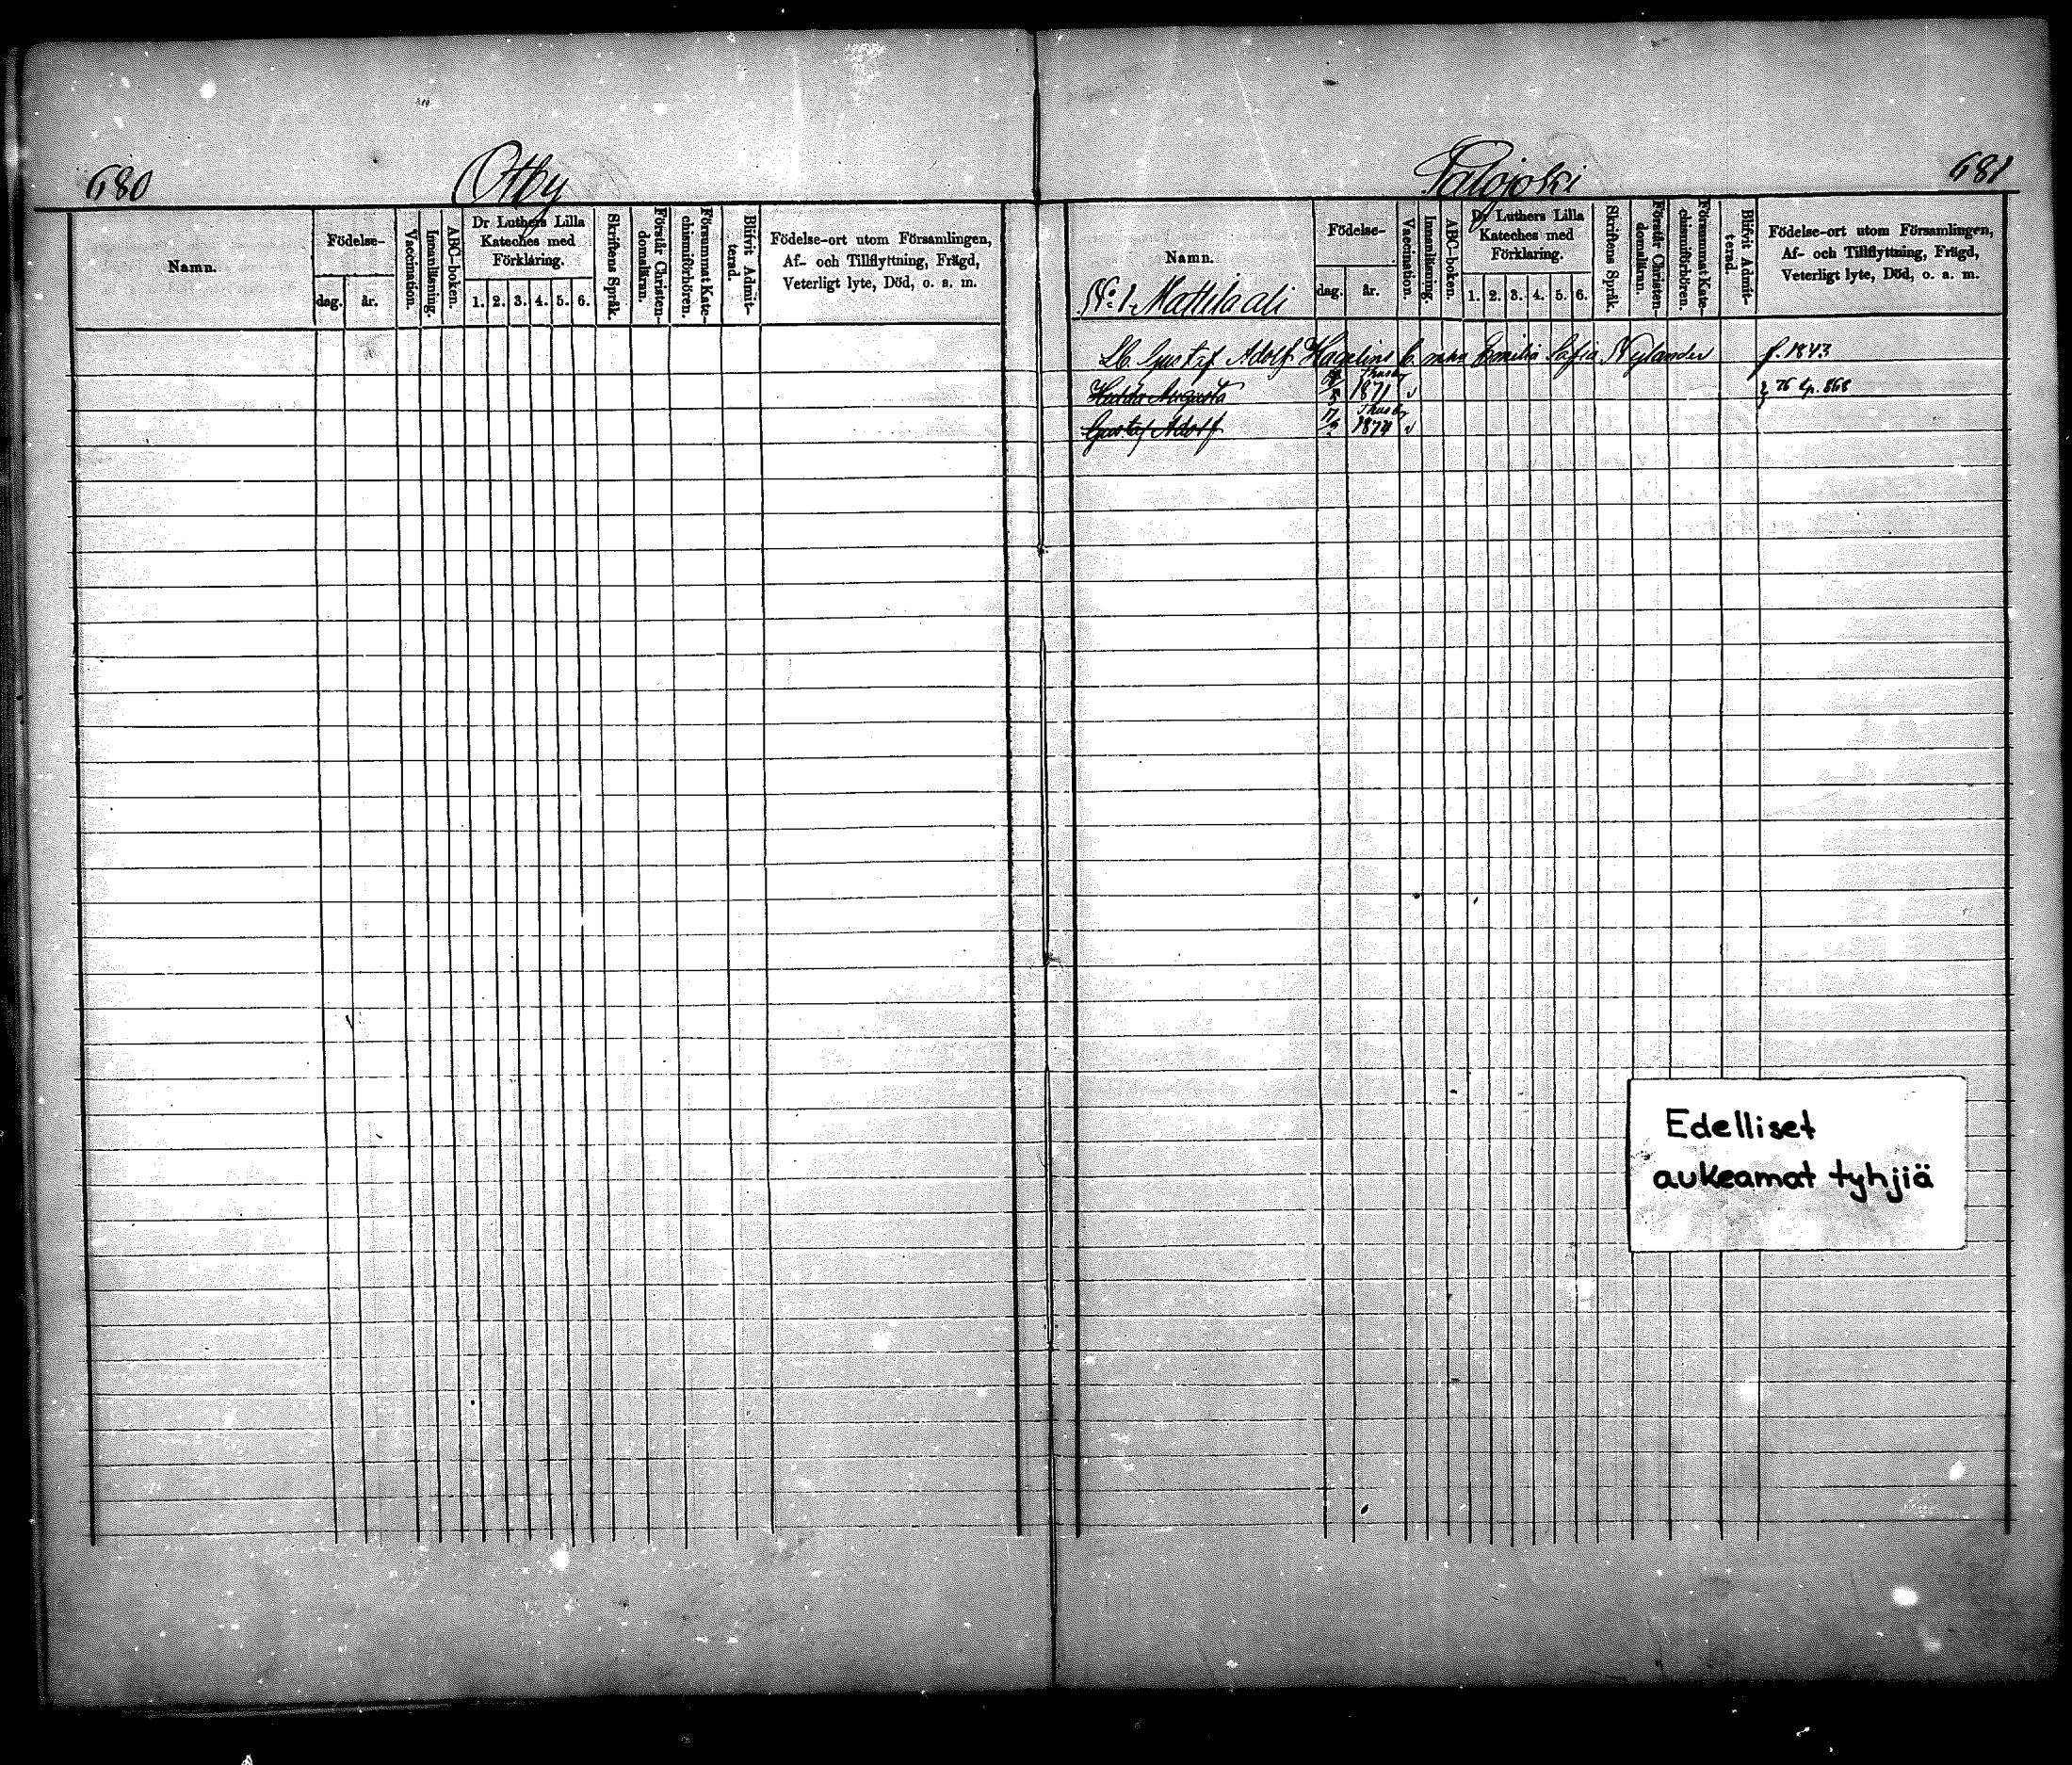 680
Otby
Namn.
Födelse-
dag.
år.
Vaccination.
Innanläsning.
ABC-boken.
Dr Luthers Lilla
Kateches med
Förklaring.
1. 2. 3. 4. 5. 6.
Skriftens Språk.
Förstår Christen-
domsläran.
Försummat Kate-
chismiförhören.
Blifvit Admit-
terad.
Födelse-ort utom Församlingen,
Af- och Tillflyttning, Frägd,
Veterligt lyte, Död, o. a. m.
Palojoki
681
Namn.
N:o 1. Mattila ali
Födelse-
dag.
år.
Vaccination.
Innanläsning.
ABC-boken.
Dr Luthers Lilla
Kateches med
Förklaring.
1. 2. 3. 4. 5. 6.
Skriftens Språk.
Förstår Christen-
domsläran.
Försummat Kate-
chismiförhören.
Blifvit Admit-
terad.
Födelse-ort utom Församlingen,
Af- och Tillflyttning, Frägd,
Veterligt lyte, Död, o. a. m.
Gustaf Adolf Hagelins Emilia Sofia Nylander f. 1843
Hedda Augusta 5 Thusby 1871 v 76 868
Gustaf Adolf 17/2 Thusby 1874 v
Edelliset
aukeamat tyhjiä